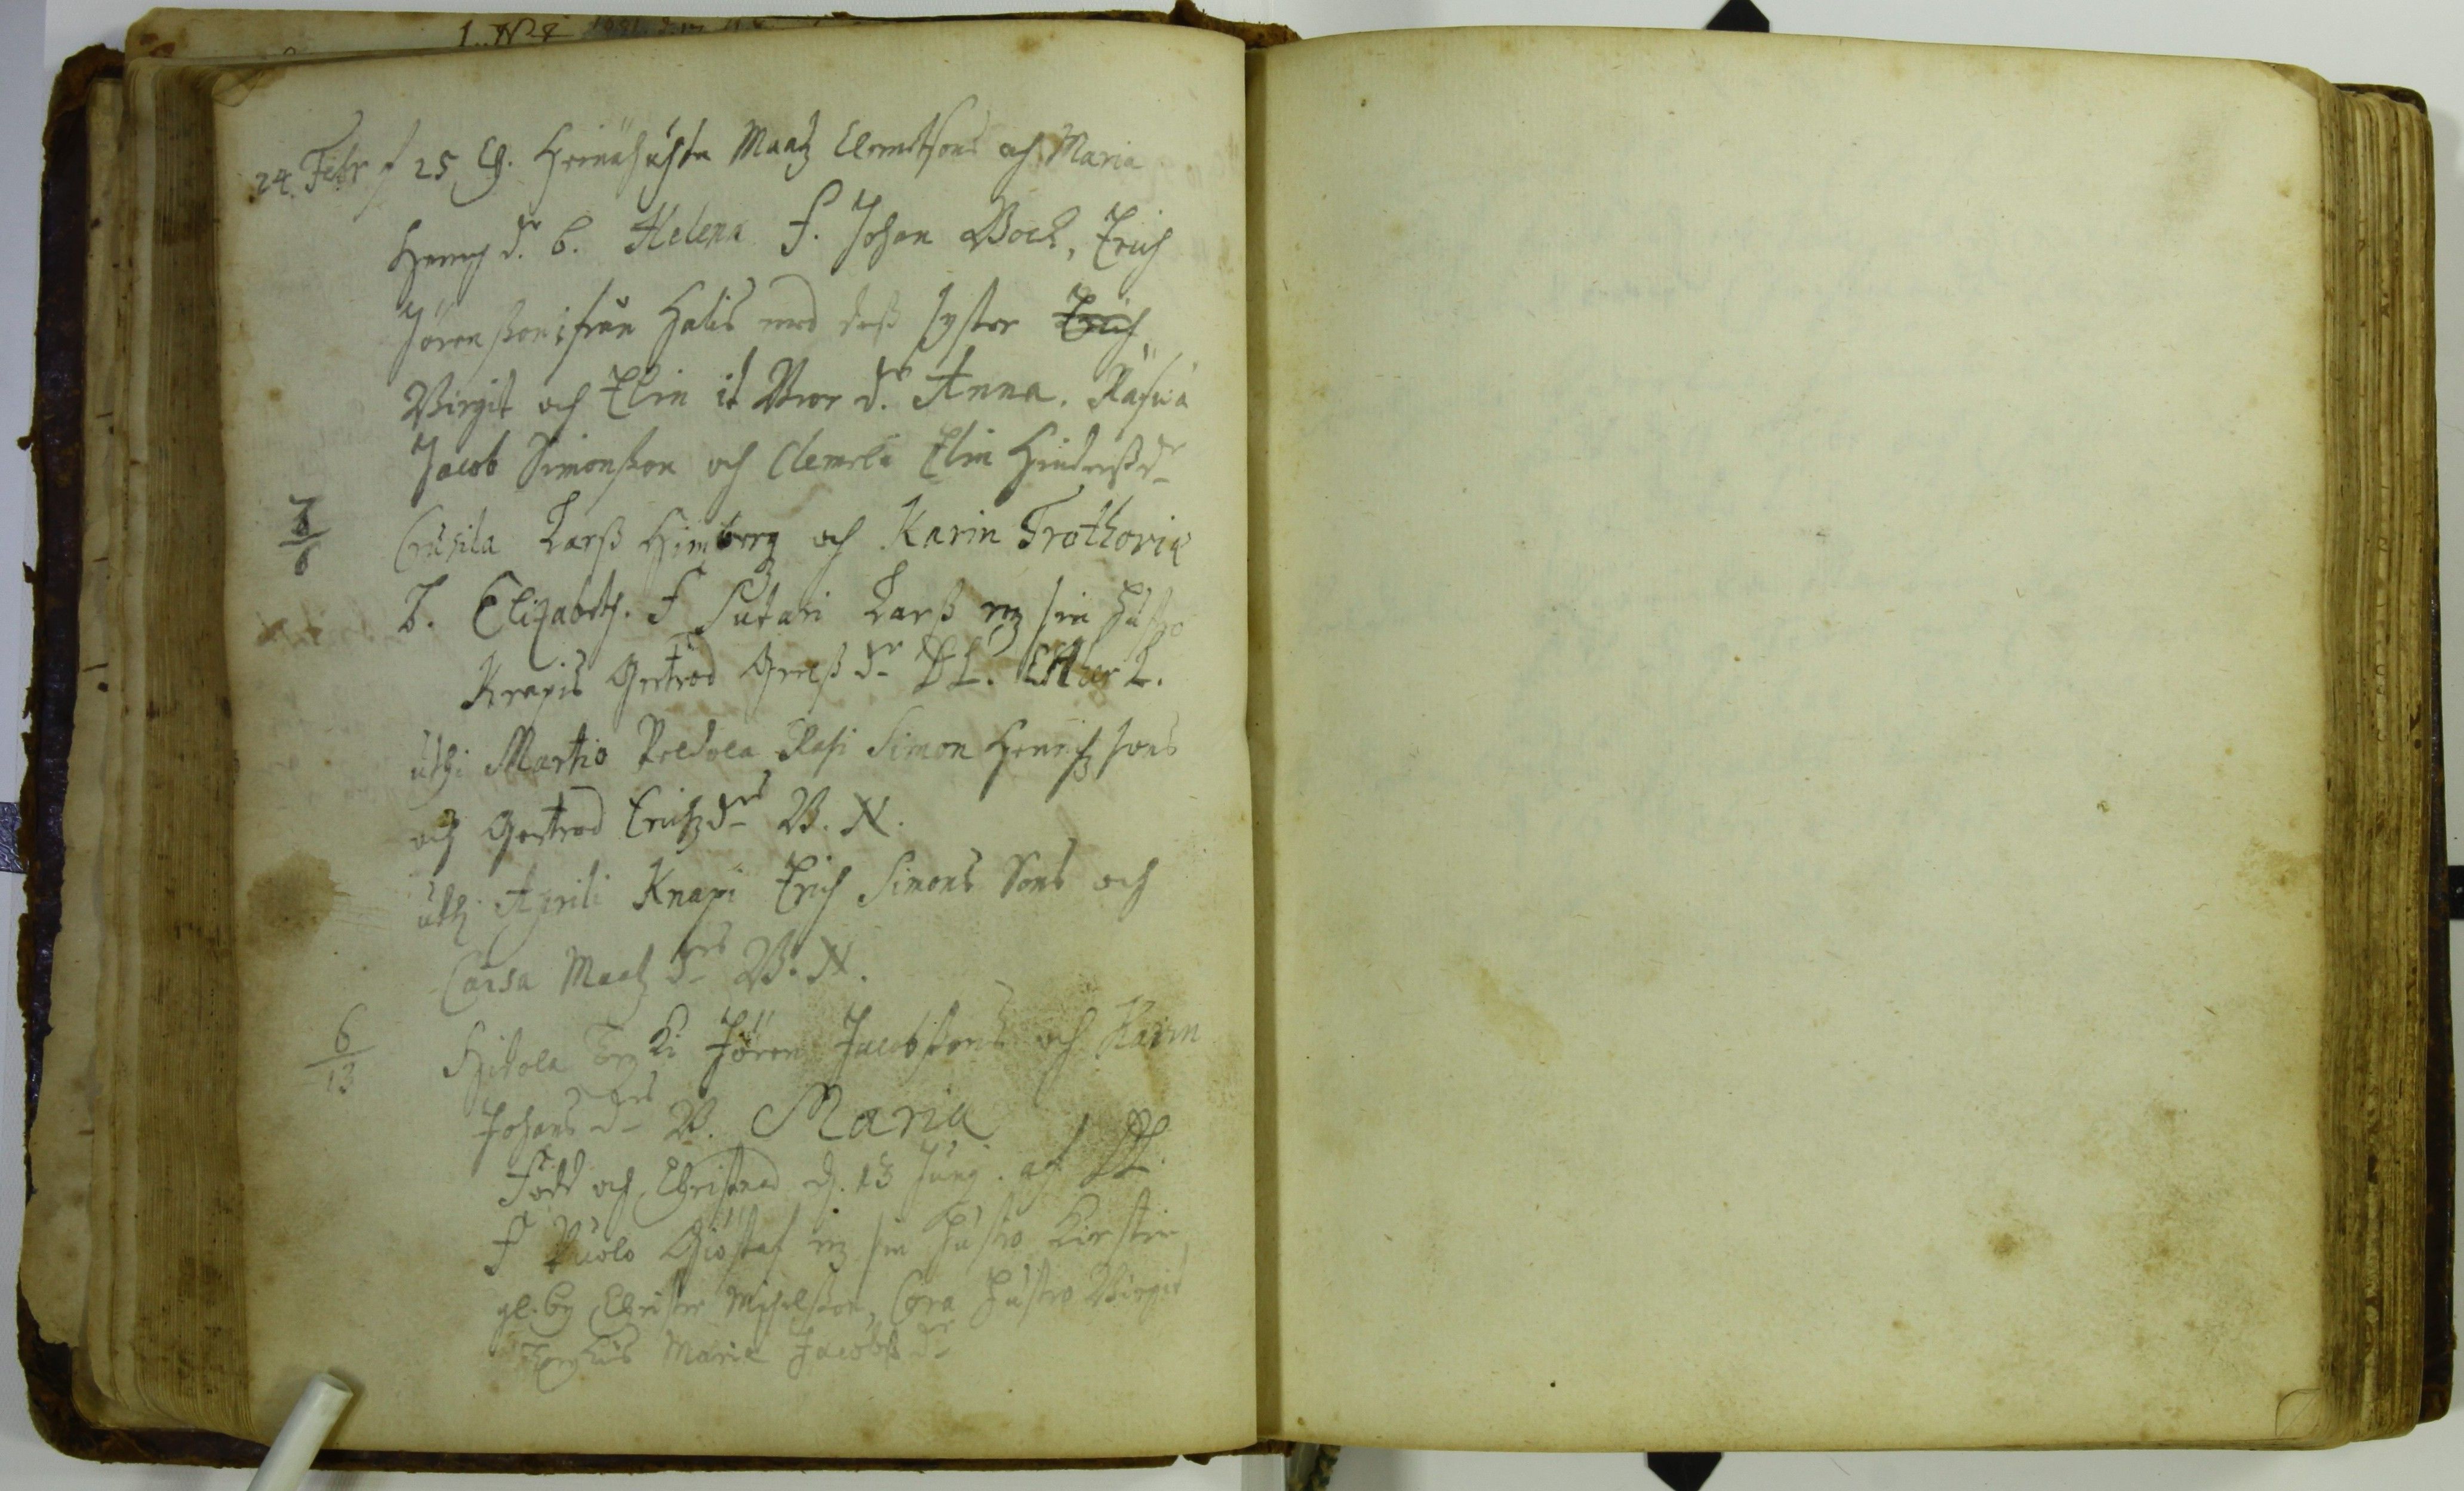 24. Febr f 25 Ch. Heinäsuhta Maatz Clemetsons och Maria
Henrich dr. b. Helena f. Johan Bock, Erich
Jörensson ifrån Halis med dess syster Erich
Birgit och Elin it Mor dr. Anna. Räfsä
Jacob Simonsson och Clemelä Elin Hindersdr
7/6 Crusila Larss Himberg och Karin Trothovia
b. Elizabeth. f Sutari Larss m sin hustro
Krapis Gertrod Grelssdr DL.
uthi Martio Peldola Pasi Simon Henrichsons
och Gertrod Erichsdrs B. N.
uthi Aprili Knapi Erich Simons Sons och
Caisa Maatzdrs B. N.
6/13 Hidola Jören Jacobssons och Karin
Johansdrs B. Maria
Född och Christnad d. 13 Junij. af DL.
f Giöstaf m sin hustro Kirstin
Christer Michelsson, hustro Birgit
Maria Jacobsdr